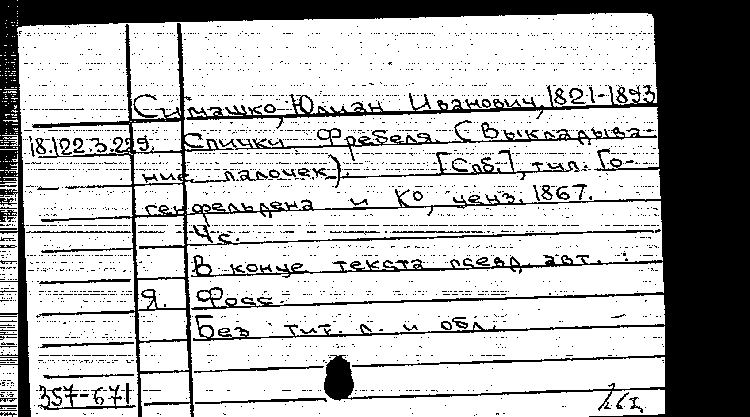 Симашко, Юлиан Иванович, 1821-1893
18.122.3.229. Спички Фребеля. (Выкладыва-
ние палочек). [Спб.], тип. Го-
генфельдена и Ко, ценз. 1867.
4 с.
В конце текста псевд. авт. :
Я. Фосс.
Без тит. л. и обл.
357-671